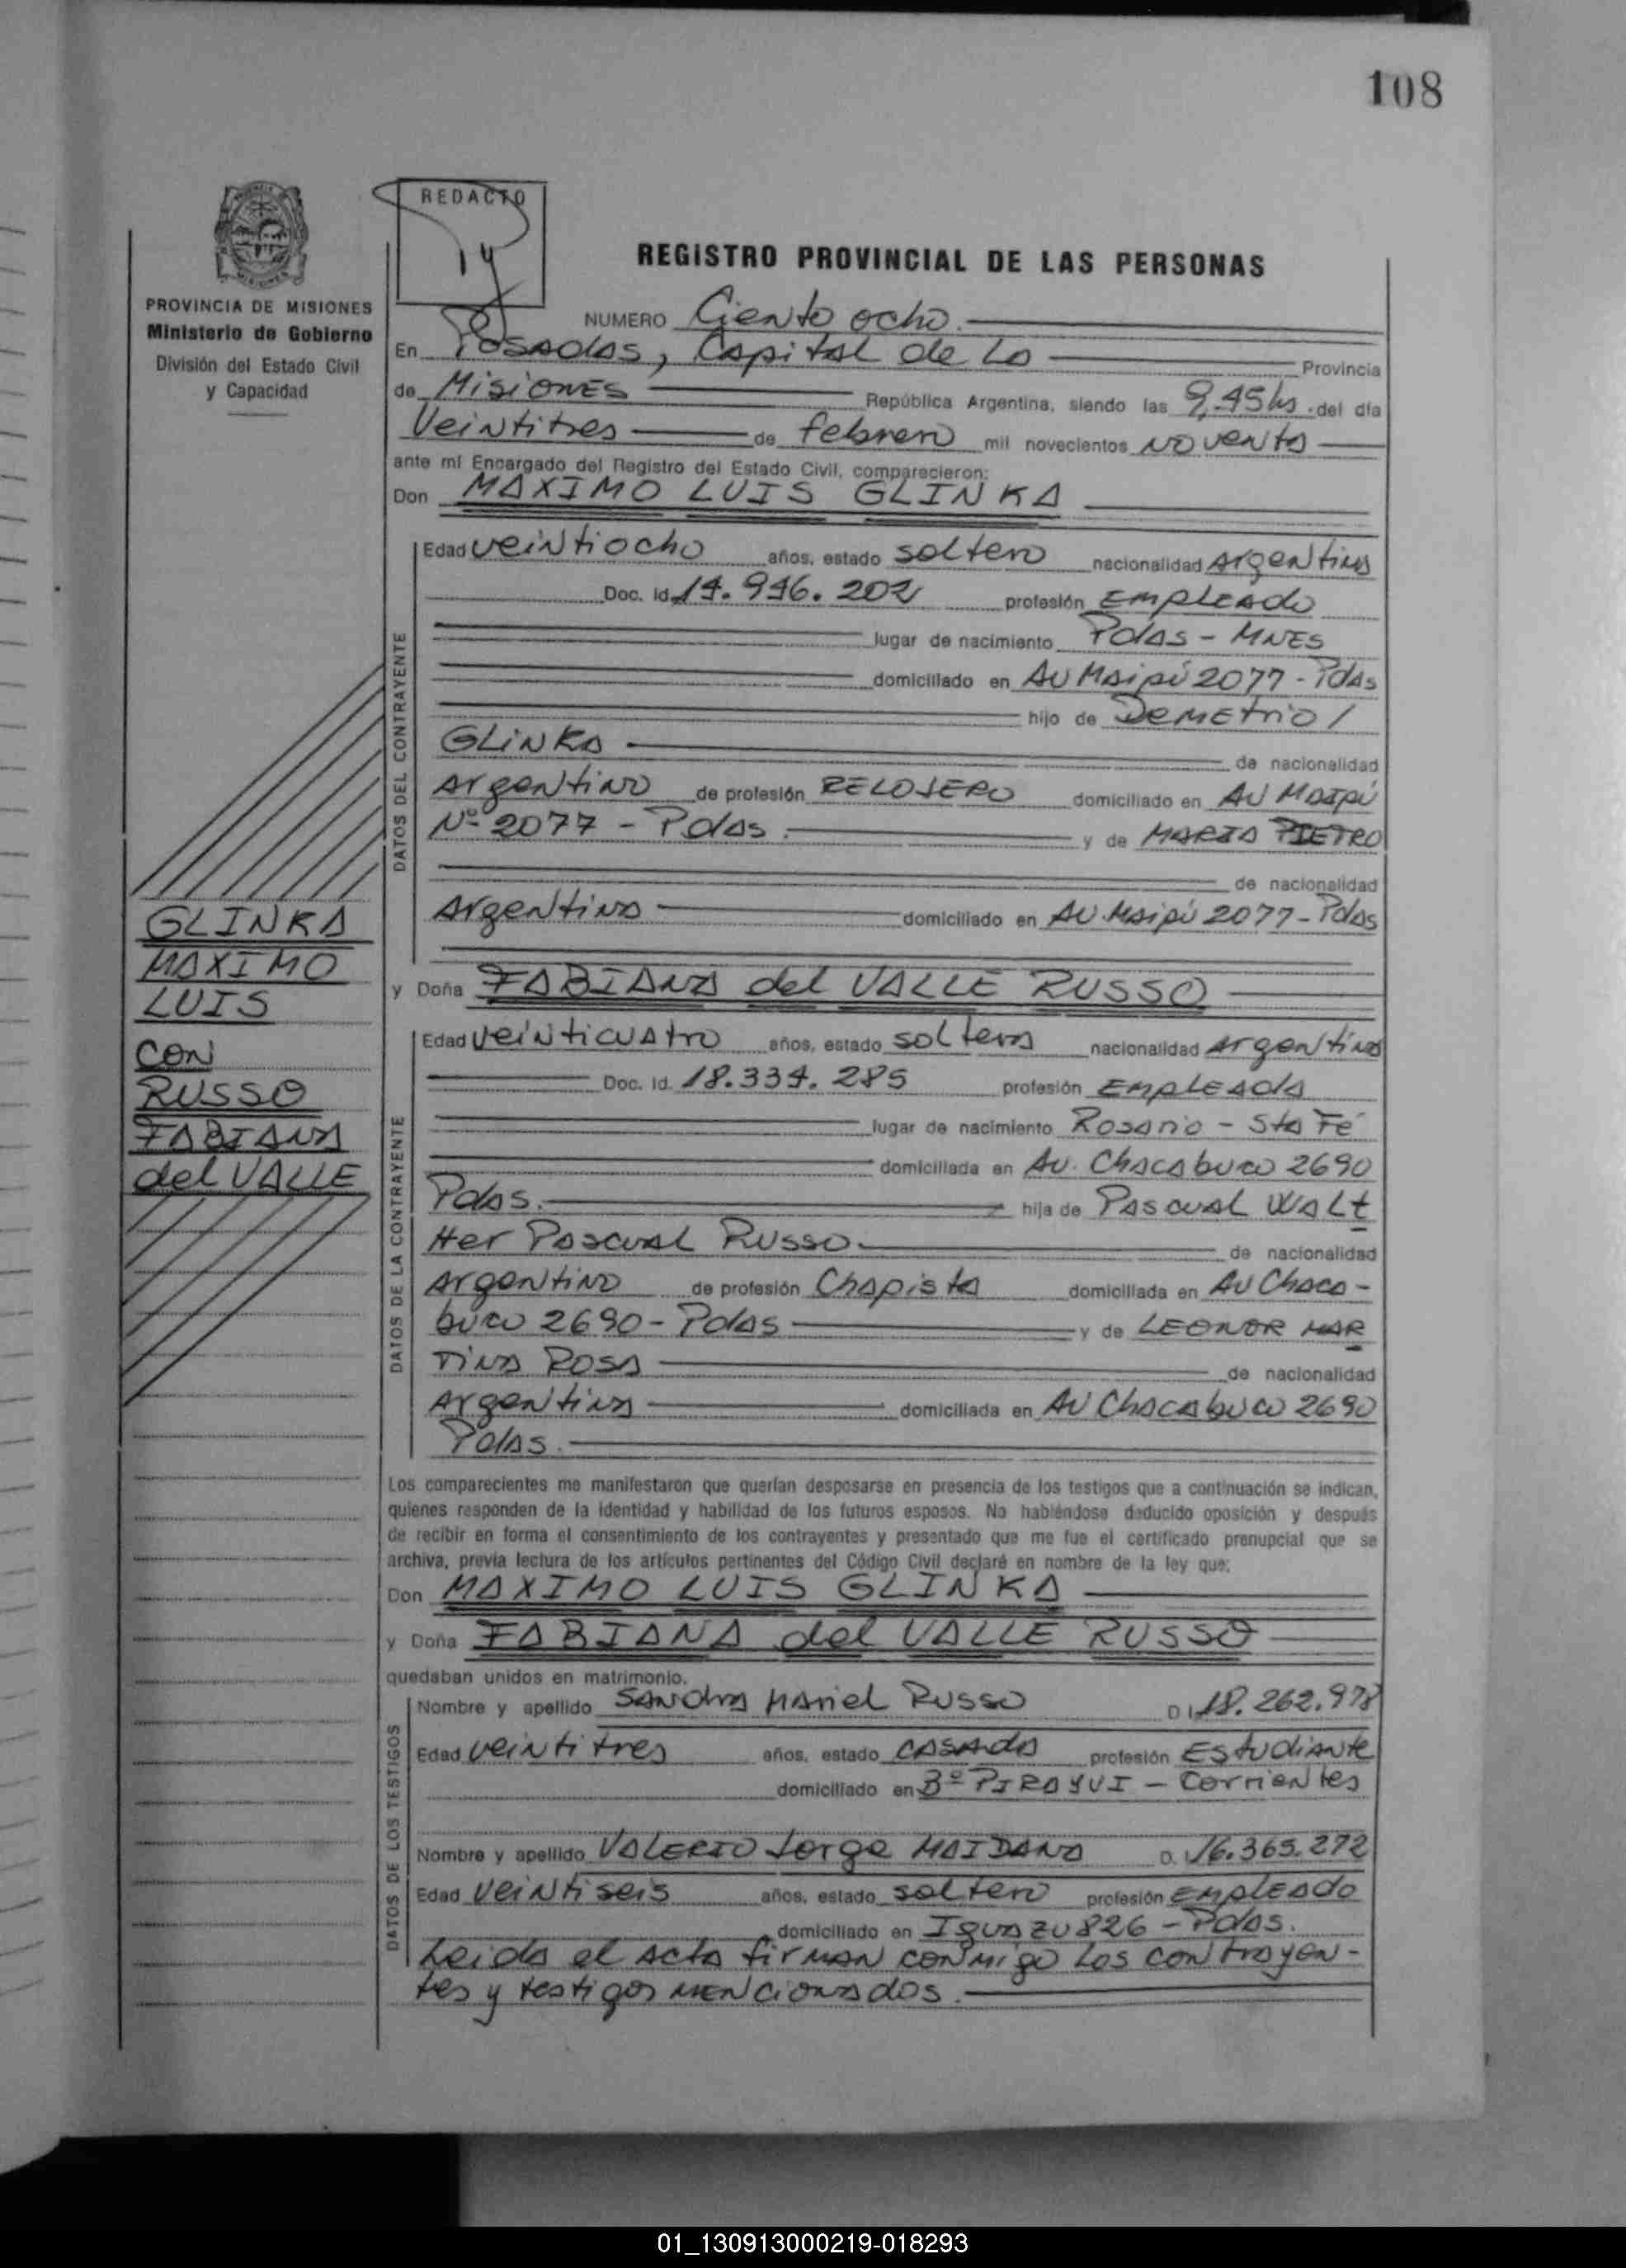 108
REDACTO
14
REGISTRO PROVINCIAL DE LAS PERSONAS
PROVINCIA DE MISIONES
Ministerio de Gobierno
División del Estado Civil
y Capacidad
NUMERO Ciento ocho.
En Posadas, Capital de La Provincia
de Misiones República Argentina, siendo las 9,45 hs. del día
Veintitres de febrero mil novecientos noventa
ante mí Encargado del Registro del Estado Civil, comparecieron:
Don MAXIMO LUIS GLINKA
DATOS DEL CONTRAYENTE
Edad veintiocho años, estado soltero nacionalidad Argentina
Doc. Id. 14.946.202 profesión Empleado
lugar de nacimiento Pdas - Mnes
domiciliado en Au Maipú 2077 - Pdas
hijo de Demetrio /
Glinka de nacionalidad
Argentino de profesión RELOJERO domiciliado en Au Maipú
Nº 2077 - Pdas. y de MARIA PIETRO
de nacionalidad
Argentina domiciliado en Au. Maipú 2077 - Pdas
GLINKA
MAXIMO
LUIS
CON
RUSSO
FABIANA
del VALLE
y Doña FABIANA del VALLE RUSSO
DATOS DE LA CONTRAYENTE
Edad veinticuatro años, estado soltera nacionalidad Argentina
Doc. Id. 18.334.285 profesión Empleada
lugar de nacimiento Rosario - Sta Fé
domiciliada en Au. Chacabuco 2690
Pdas. hija de Pascual Walt
Her Pascual Russo. de nacionalidad
Argentino de profesión Chapista domiciliada en Au Chaca-
buco 2690 - Pdas y de LEONOR MAR
TINA ROSA de nacionalidad
Argentina domiciliada en Au Chacabuco 2690
Pdas.
Los comparecientes me manifestaron que querían desposarse en presencia de los testigos que a continuación se indican,
quienes responden de la identidad y habilidad de los futuros esposos. No habiéndose deducido oposición y después
de recibir en forma el consentimiento de los contrayentes y presentado que me fue el certificado prenupcial que se
archiva, previa lectura de los artículos pertinentes del Código Civil declaré en nombre de la ley que:
Don MAXIMO LUIS GLINKA
y Doña FABIANA del VALLE RUSSO
quedaban unidos en matrimonio.
DATOS DE LOS TESTIGOS
Nombre y apellido Sandra Mariel Russo D I 18.262.978
Edad veintitres años, estado casada profesión Estudiante
domiciliado en Bº PIRAYUI - Corrientes
Nombre y apellido VALERIO Jorge MAIDANA D. 16.365.272
Edad veintiseis años, estado soltero profesión Empleado
domiciliado en Iguazu 826 - Pdas.
Leida el acta firman conmigo los contrayen-
tes y testigos mencionados.
01_130913000219-018293